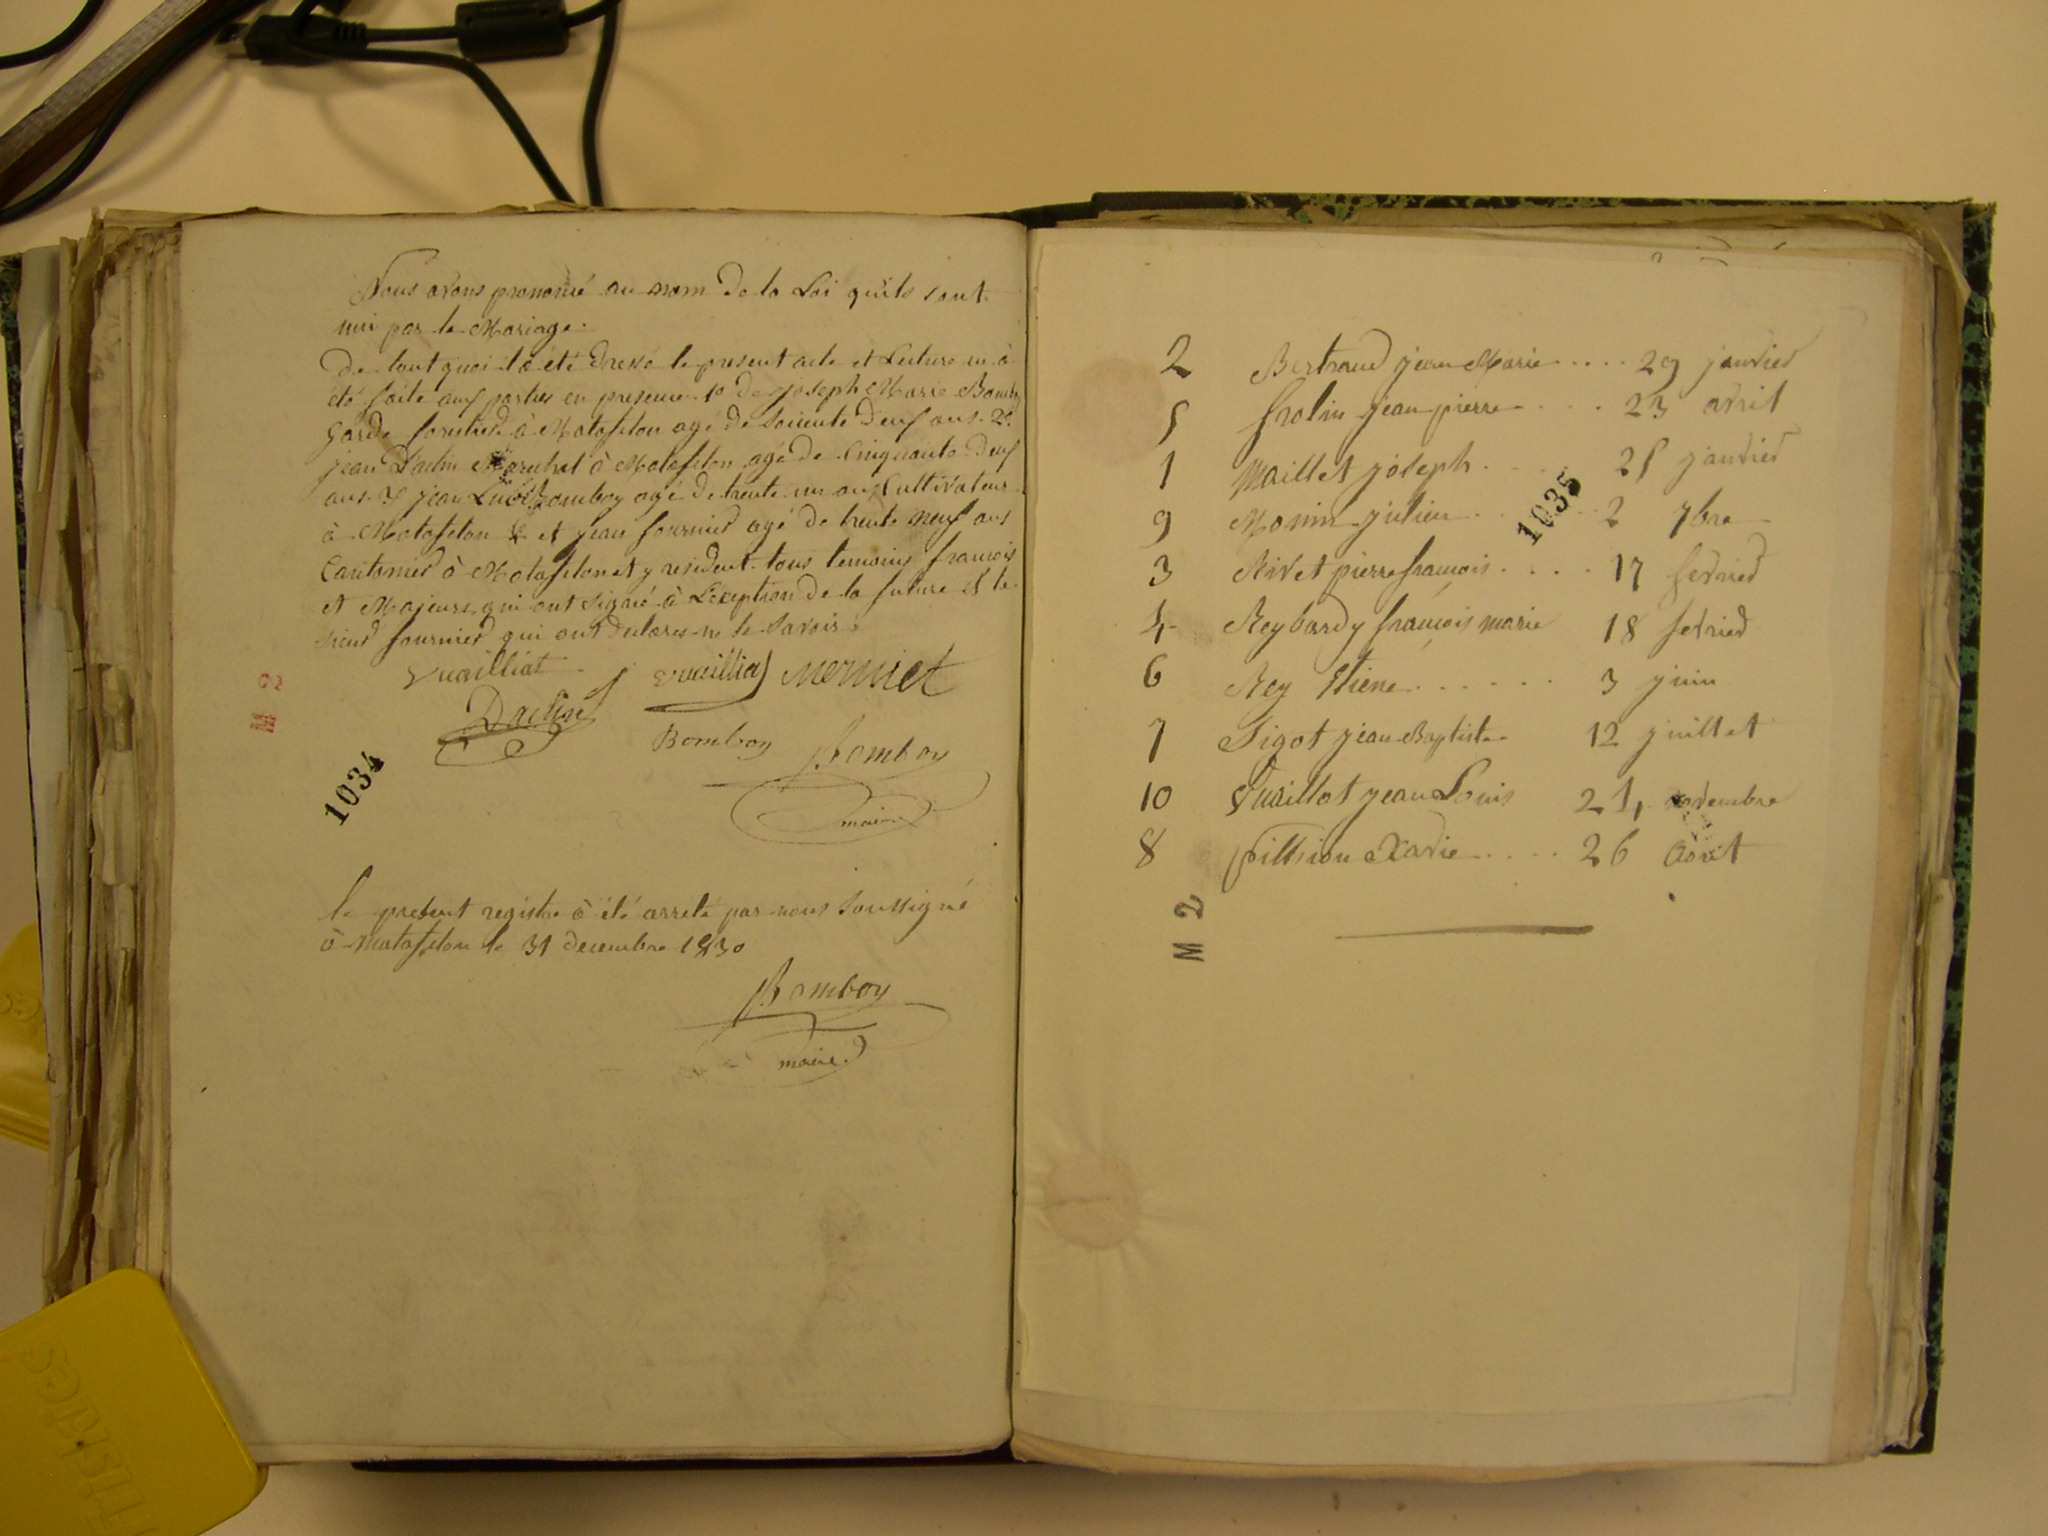 Nous avons prononcé au nom de la Loi qu'ils sont
uni par le Mariage.
De tout quoi il à été dressé le présent acte et Lecture en à
été faite aux parties en presence 1º de joseph Marie Bomboy
Garde forestier à Matafelon agé de soixente deux ans. 2º.
jean Daclin Marechal à Matafelon agé de Cinquante deux
ans. 3º jean Bomboy agé de trente un ans Cultivateur
à Matafelon et jean fournier agé de trente neuf ans
Cantonier à Matafelon et y resident tous temoins francois
et Majeurs qui ont signé à L'exeption de la future et le
sieur fournier qui ont declares ne le savoir.
Vuailliat Vuailliat Mermet
Daclin
Bomboy Bomboy
maire
1034
M 2
le present registre à été arreté par nous soussigné
à matafelon le 31 decembre 1830
Bomboy
maire
2 Bertrand jean Marie .... 29 janvier
5 frolin jean pierre .... 23 avril
1 Maillet joseph .... 25 janvier
1035
9 Monin julien .... 2 7bre
3 Rivet pierre francois .... 17 fevrier
4 Reybardy francois marie 18 fevrier
6 Rey Etiene ...... 3 juin
7 Sigot jean Baptiste 12 juillet
10 Vuaillat jean Louis 21, novembre
8 fillion Xavie .... 26 Aout
M 2